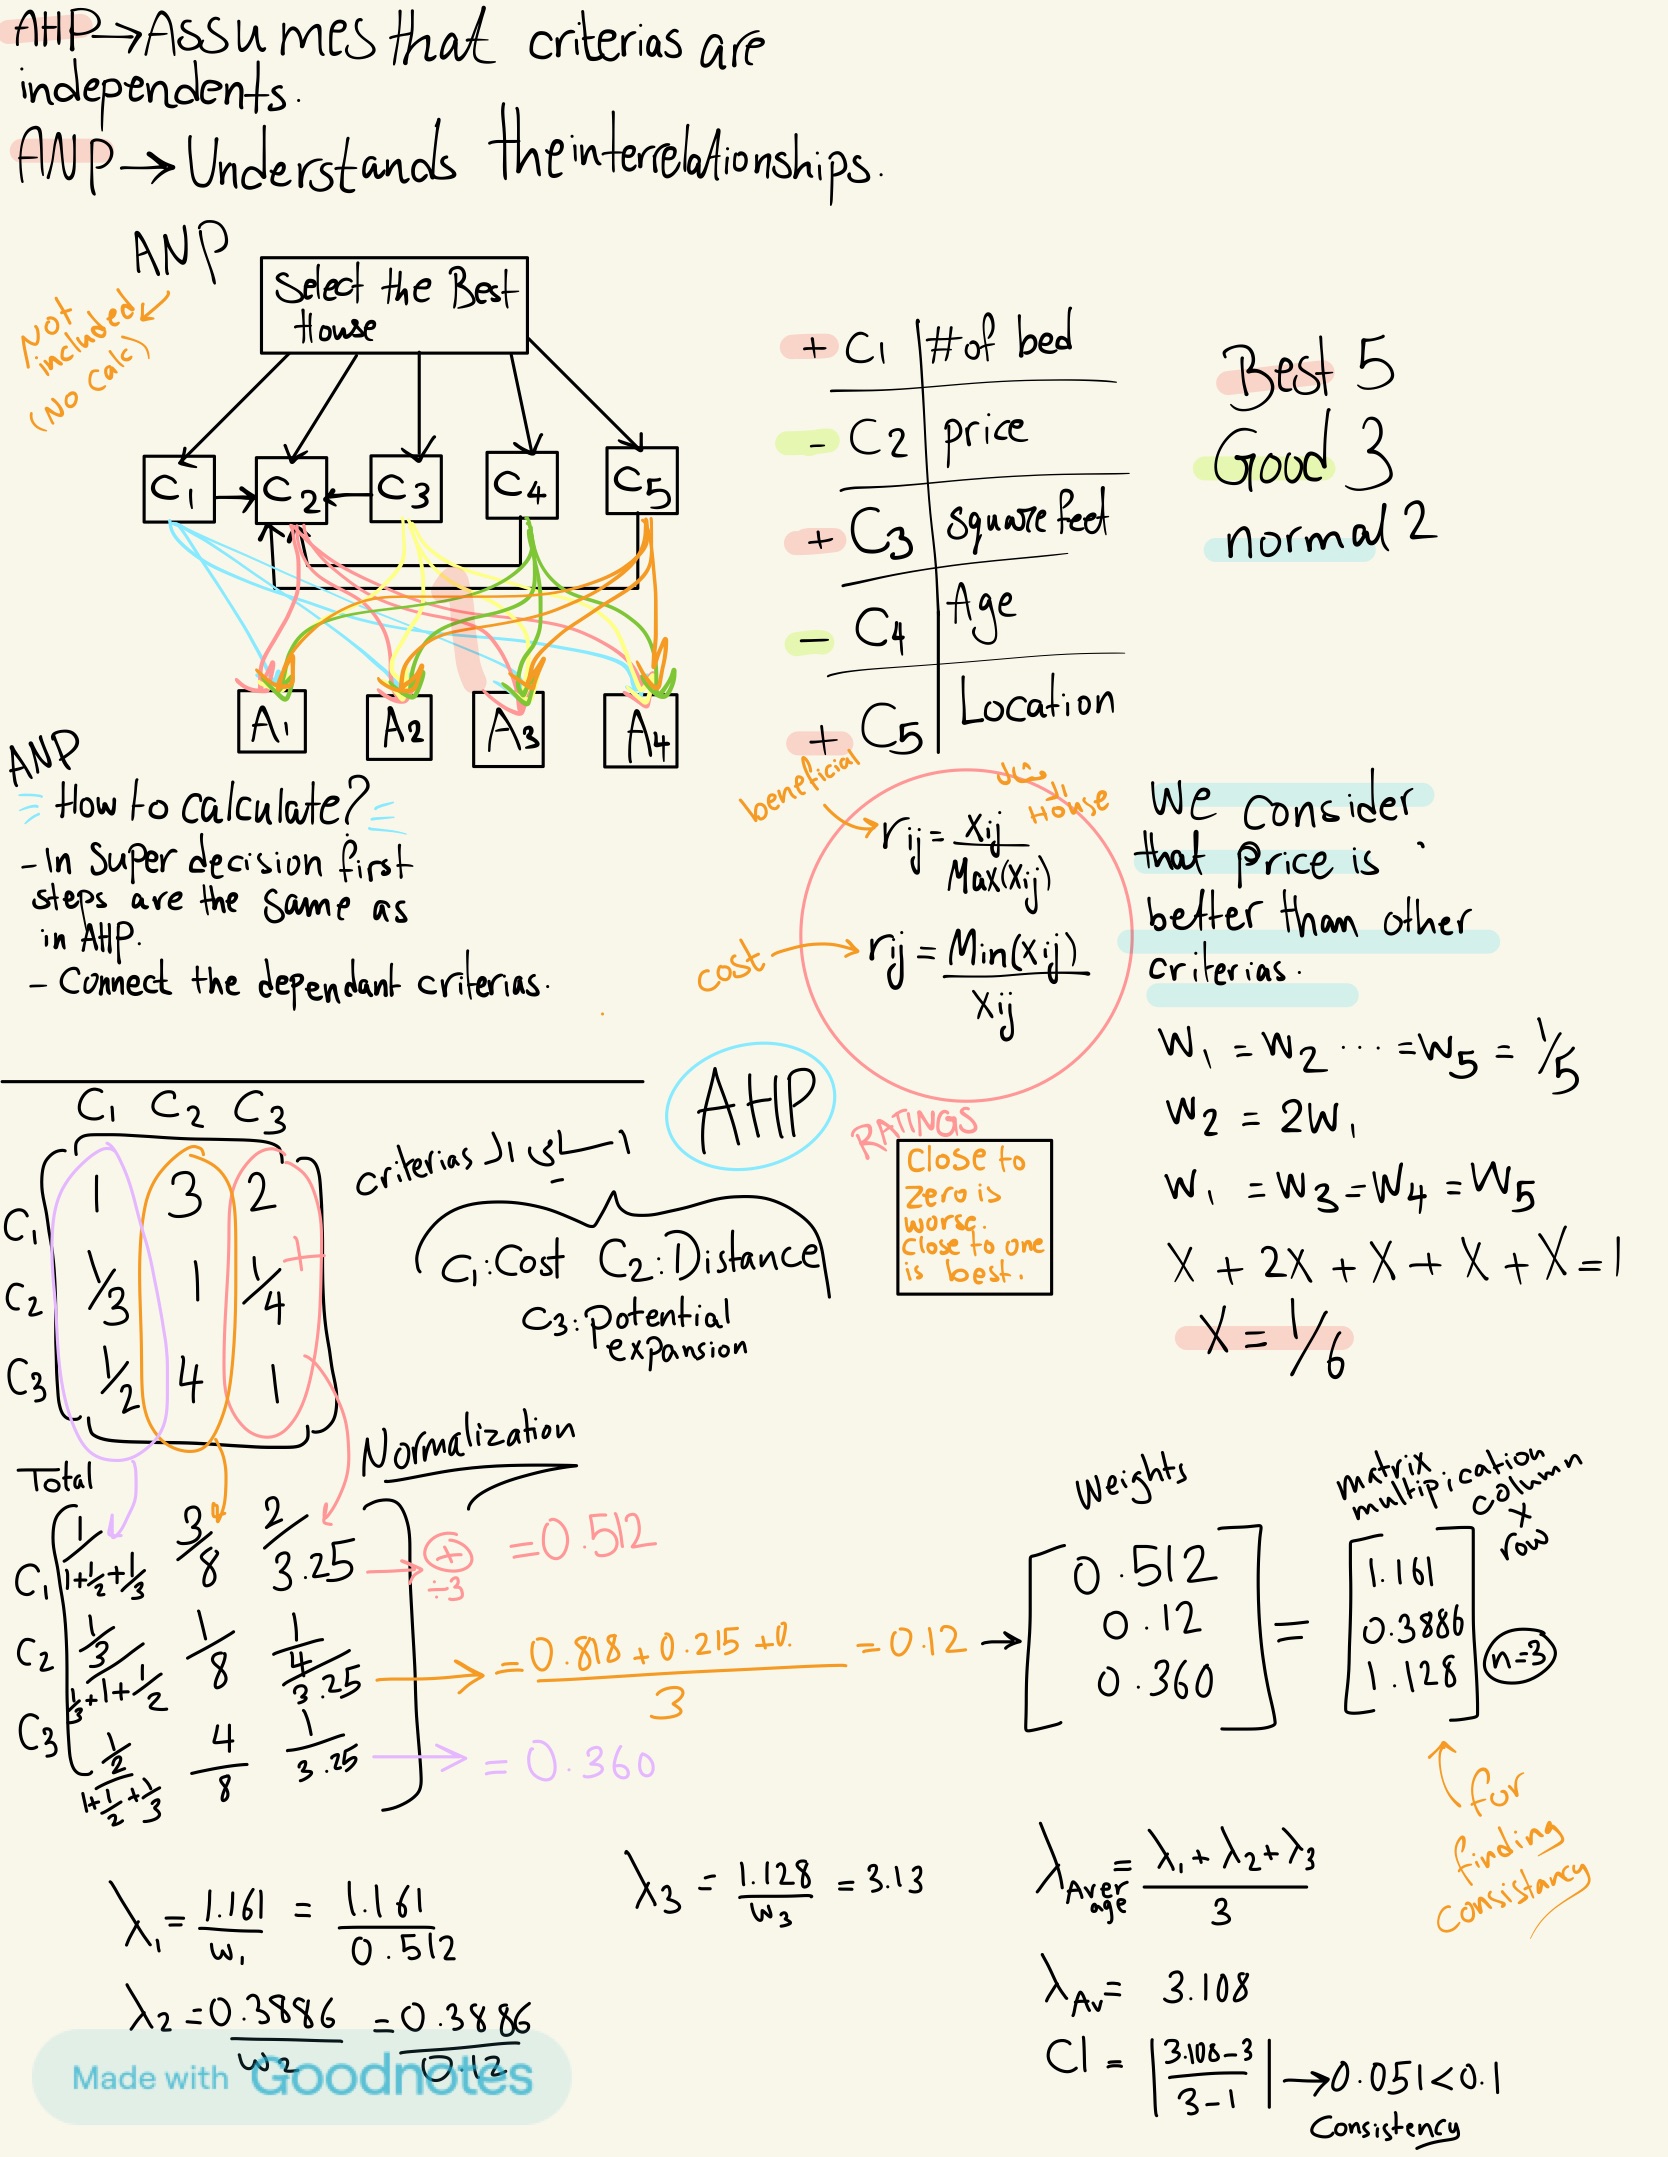 AHP→Assumes that criterias are
independents.
ANP→Understands the interrelationships.
ANP
Not
included
(No Calc)
Select the Best
House
C1 C2 C3 C4 C5
A1 A2 A3 A4
+ C1 #of bed
- C2 price
+ C3 square feet
- C4 Age
+ C5 Location
Best 5
Good 3
normal 2
ANP
How to calculate?
- In Super decision first
steps are the same as
in AHP.
- Connect the dependant criterias.
beneficial
House
rij = xij / Max(xij)
cost
rij = Min(xij) / xij
We consider
that price is
better than other
criterias.
W1 = W2 ... = W5 = 1/5
W2 = 2W1
W1 = W3 = W4 = W5
X + 2X + X + X + X = 1
X = 1/6
AHP
RATINGS
Close to
zero is
worse.
Close to one
is best.
C1 C2 C3
C1 1 3 2
C2 1/3 1 1/4
C3 1/2 4 1
+
criterias
C1:Cost C2:Distance
C3:Potential
expansion
Total
Normalization
C1 1/1+1/2+1/3 3/8 2/3.25
+ ÷3 = 0.512
C2 1/3/1/3+1+1/2 1/8 1/4/3.25
= 0.818 + 0.215 + 0. / 3 = 0.12 →
C3 1/2/1+1/2+1/3 4/8 1/3.25
= 0.360
Weights
0.512
0.12
0.360
=
matrix
multipication
column
x
row
1.161
0.3886
1.128
n=3
for
finding
consistancy
λ1 = 1.161/w1 = 1.161/0.512
λ2 = 0.3886/w2 = 0.3886/0.12
λ3 = 1.128/w3 = 3.13
λAverage = λ1+λ2+λ3 / 3
λAv = 3.108
CI = |3.108-3 / 3-1| → 0.051<0.1
Consistency
Made with Goodnotes